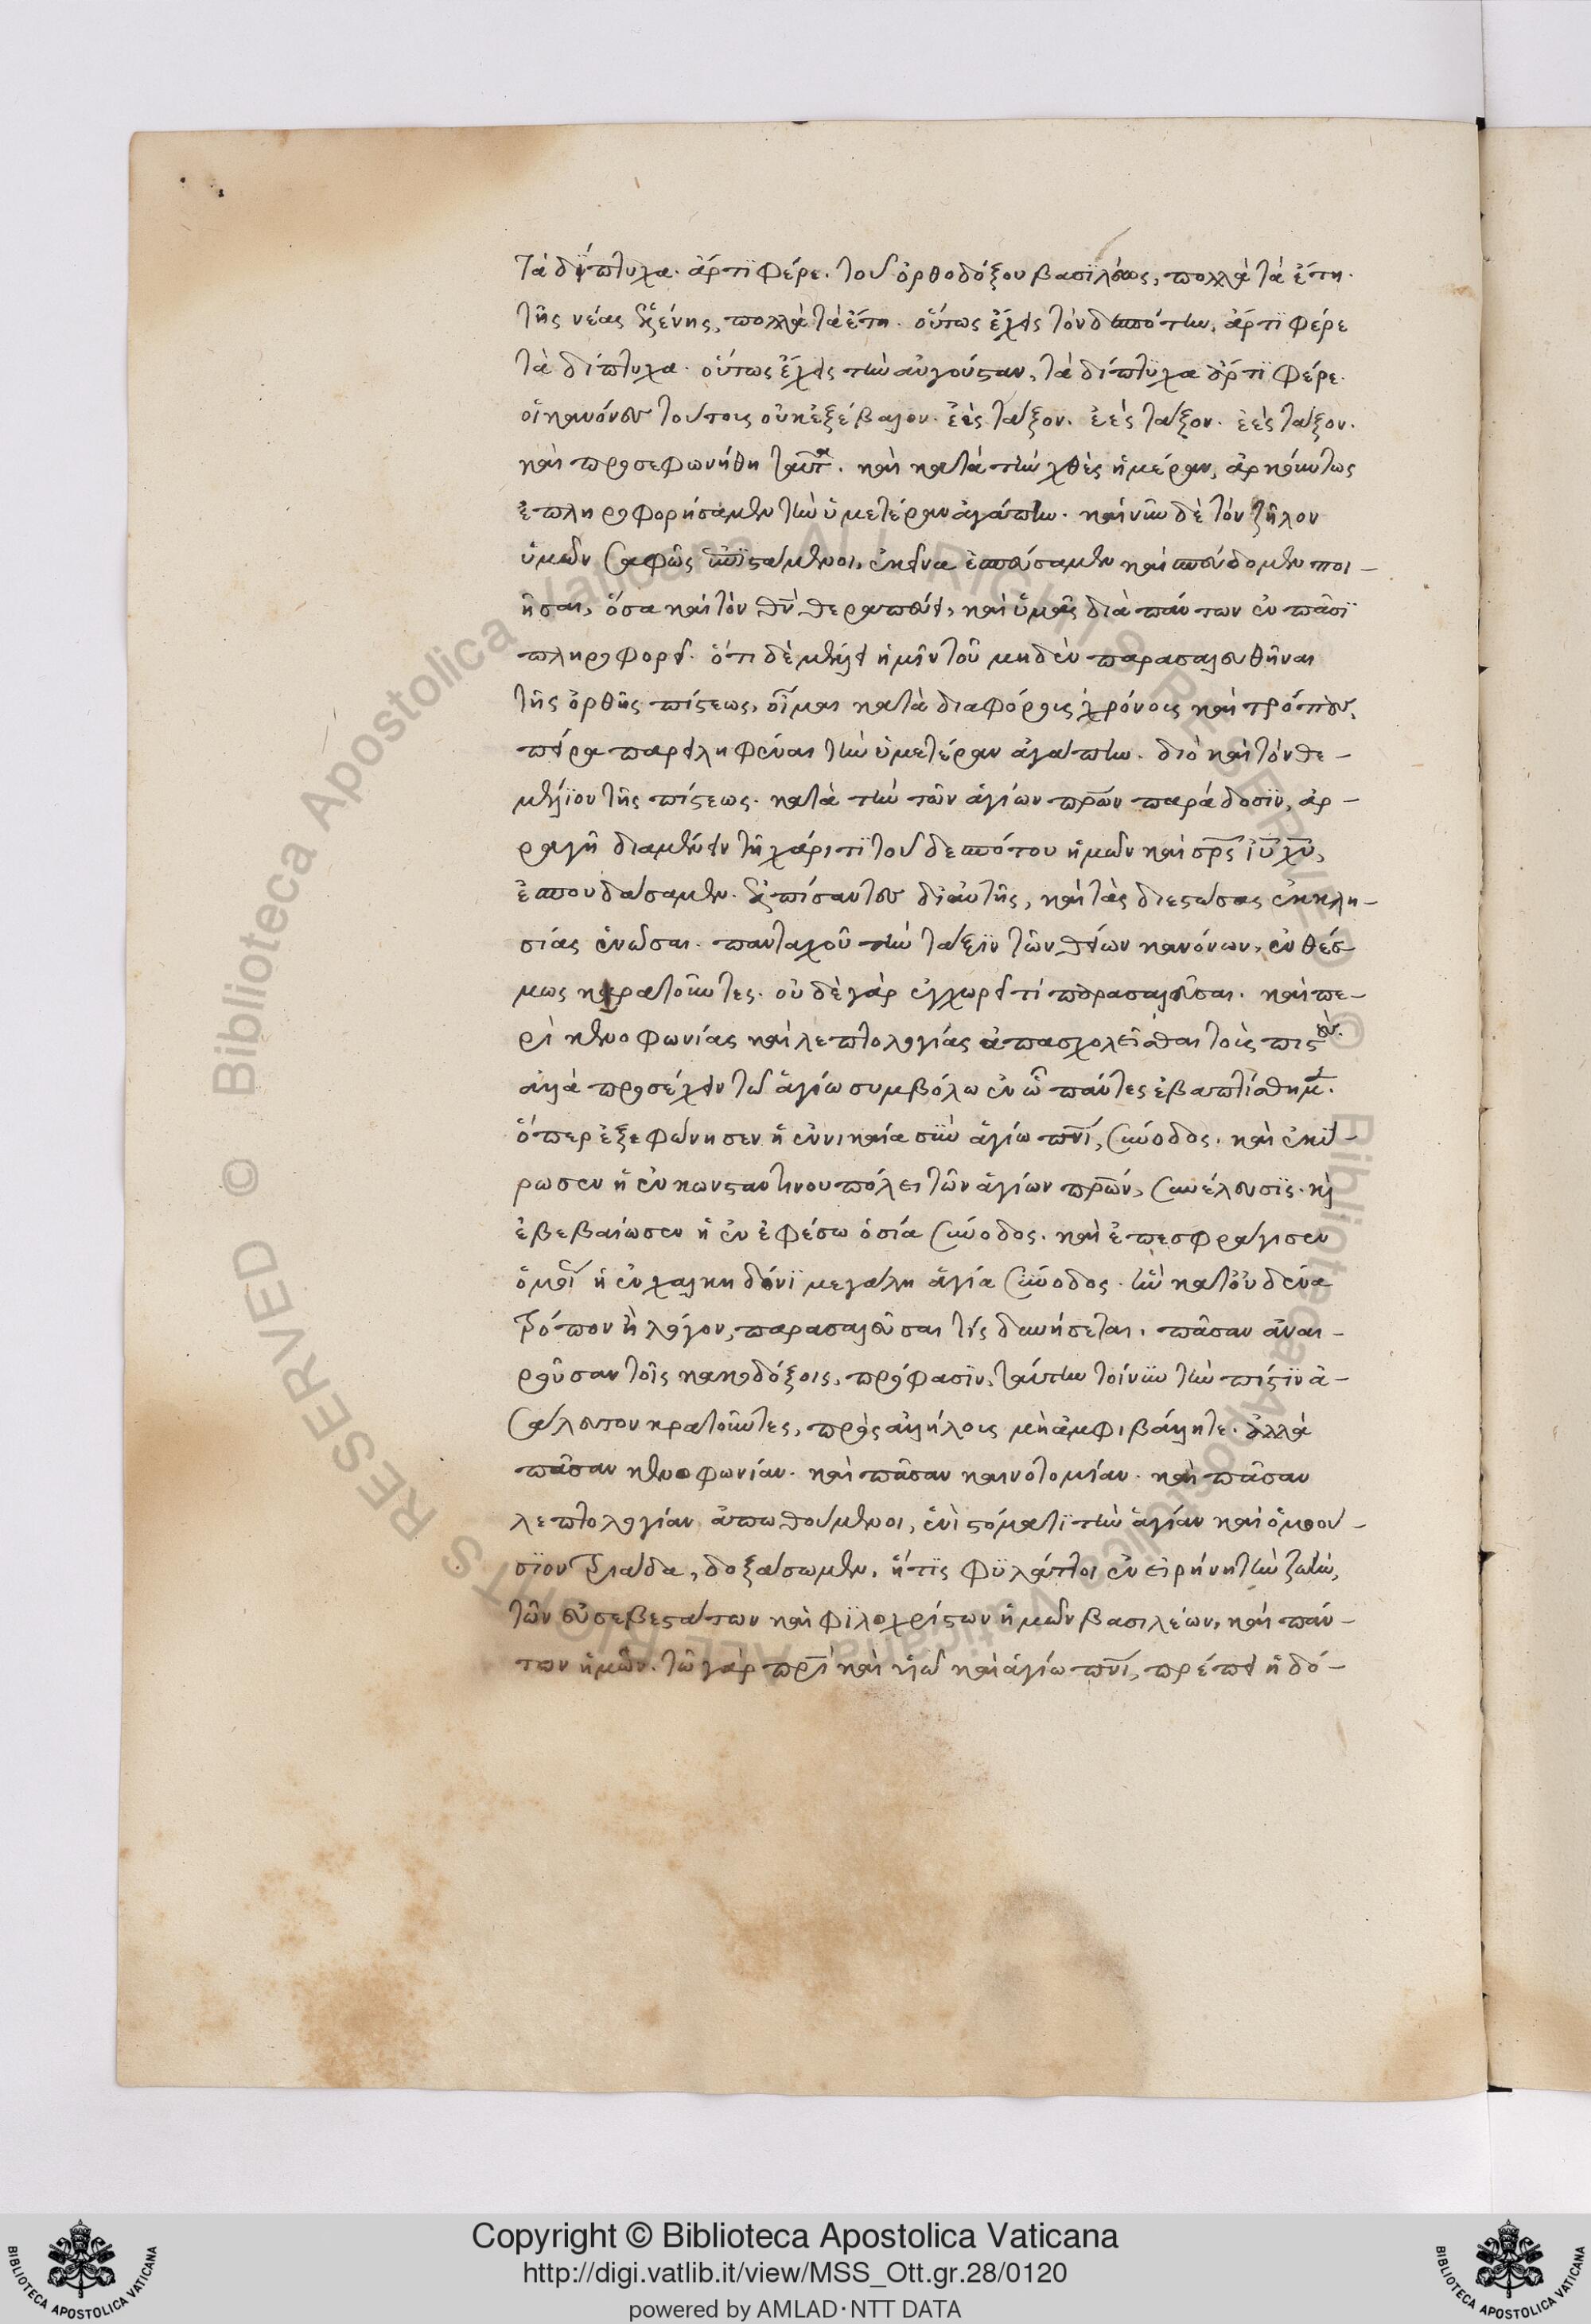 τὰ δίπτυχα. ἄρτι φέρε. τοῦ ὀρθοδόξου βασιλέως, πολλὰ τὰ ἔτη.
τῆς νέας ἑλένης, πολλὰ τὰ ἔτη. οὕτως ἔχεις τὸν δεσπότην, ἄρτι φέρε
τὰ δίπτυχα. οὕτως ἔχεις τὴν αὐγούσταν, τὰ δίπτυχα ἄρτι φέρε.
οἱ κανόνες τούτοις οὐκ ἐξέβαλον. ἐὲς τάξον. ἐὲς τάξον. ἐὲς τάξον.
καὶ προσεφωνήθη ταῦτα. καὶ κατὰ τὴν χθὲς ἡμέραν, ἀρκούντως
ἐπληροφορήσαμεν τὴν ὑμετέραν ἀγάπην. καὶ νῦν δὲ τὸν ζῆλον
ὑμῶν σαφῶς ἐπιστάμενοι, ἐκεῖνα ἐσπεύσαμεν καὶ σπεύδομεν ποι-
ῆσαι, ὅσα καὶ τὸν θν θεραπεύει, καὶ ὑμᾶς διὰ πάντων ἐν πᾶσι
πληροφορεῖ. ὅτι δὲ μέλει ἡμῖν τοῦ μηδὲν παρασαλευθῆναι
τῆς ὀρθῆς πίστεως, οἶμαι κατὰ διαφόροις χρόνοις καὶ τρόποις,
πεῖρα παρειληφέναι τὴν ὑμετέραν ἀγάπην. διὸ καὶ τὸν θε-
μέλιον τῆς πίστεως. κατὰ τὴν τῶν ἁγίων πρων παράδοσιν, ἀρ-
ραγῆ διαμένειν τῇ χάριτι τοῦ δεσπότου ἡμῶν καὶ σρς ιυ χυ,
ἐσπουδάσαμεν. ἐλπίσαντες δι' αὐτῆς, καὶ τὰς διεστώσας ἐκκλη-
σίας ἑνῶσαι. πανταχοῦ τὴν τάξιν τῶν θείων κανόνων, ἐνθέσ-
μως κρατοῦντες. οὐδὲ γὰρ ἐγχωρεῖ τί παρασαλεῦσαι. καὶ πε-
ρὶ κενοφωνίας καὶ λεπτολογίας ἀπασχολεῖσθαι τοὺς πιστούς.
ἀλλὰ προσέχειν τῷ ἁγίῳ συμβόλῳ ἐν ᾧ πάντες ἐβαπτίσθημεν.
ὅπερ ἐξεφώνησεν ἡ ἐν νικαία σὺν ἁγίῳ πνι, σύνοδος. καὶ ἐκύ-
ρωσεν ἡ ἐν κωνσταντινουπόλει τῶν ἁγίων πρων, συνέλευσις. καὶ
ἐβεβαίωσεν ἡ ἐν ἐφέσω ὁσία σύνοδος. καὶ ἐπεσφράγισεν
ὁμοῦ ἡ ἐν χαλκηδόνι μεγάλη ἁγία σύνοδος. ἣν κατ' οὐδένα
τρόπον ἢ λόγον, παρασαλεῦσαι τίς δυνήσεται. πᾶσαν ἀναι-
ροῦσαν τοῖς κακοδόξοις, πρόφασιν, ταύτην τοίνυν τὴν πίστιν ἀ-
σάλευτον κρατοῦντες, πρὸς ἀλλήλοις μὴ ἀμφιβάλλητε. ἀλλὰ
πᾶσαν κενοφωνίαν. καὶ πᾶσαν καινοτομίαν. καὶ πᾶσαν
λεπτολογίαν ἀπωθούμενοι, ἑνὶ στόματι τὴν ἁγίαν καὶ ὁμοού-
σιον τριάδα, δοξάσωμεν. ἥτις φυλάττοι ἐν εἰρήνῃ τὴν ζωὴν,
τῶν εὐσεβεστάτων καὶ φιλοχρίστων ἡμῶν βασιλέων, καὶ πάν-
των ἡμῶν. τῷ γὰρ πρι καὶ υἱῷ καὶ ἁγίῳ πνι, πρέπει ἡ δό-
Copyright © Biblioteca Apostolica Vaticana
http://digi.vatlib.it/view/MSS_Ott.gr.28/0120
powered by AMLAD·NTT DATA
BIBLIOTECA APOSTOLICA VATICANA
BIBLIOTECA APOSTOLICA VATICANA